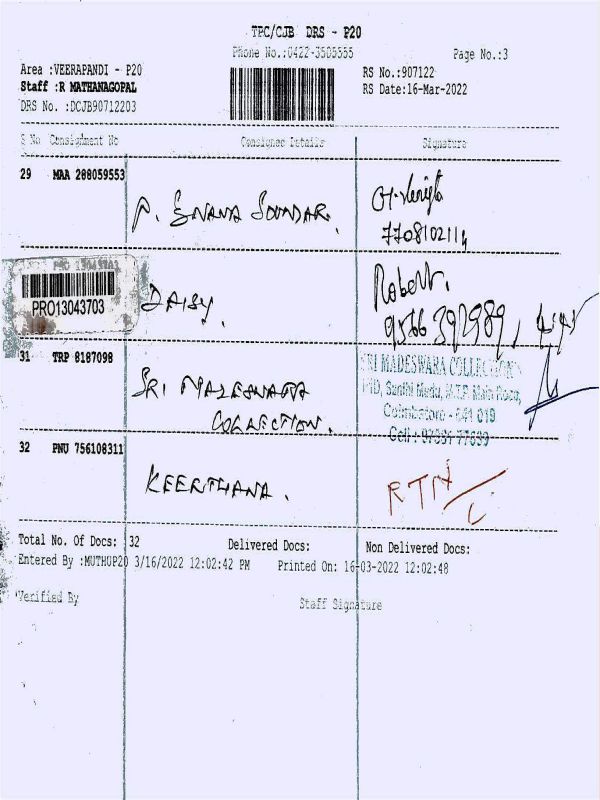 TPC/CJB DRS - P20
Phone No.:0422-3505555
Page No.:3
Area :VEERAPANDI - P20
RS No.:907122
Staff :R MATHANAGOPAL
RS Date:16-Mar-2022
DRS No. :DCJB90712203
S No Consignment No Consignee Details Signature
29 MAA 288059553
P. GNANA SOUNDAR.
7708102114
PRO 13043703
PRO13043703
DAISY.
Robert.
9566392989,
31 TRP 8187098
SRI MADESWARA COLLECTIONS
SRI MADESWARA
COLLECTION.
Coimbatore - 641 019
Cell : 97891 77639
32 PNU 756108311
KEERTHANA.
RTN
Total No. Of Docs: 32 Delivered Docs: Non Delivered Docs:
Entered By :MUTHUP20 3/16/2022 12:02:42 PM Printed On: 16-03-2022 12:02:48
Verified By Staff Signature